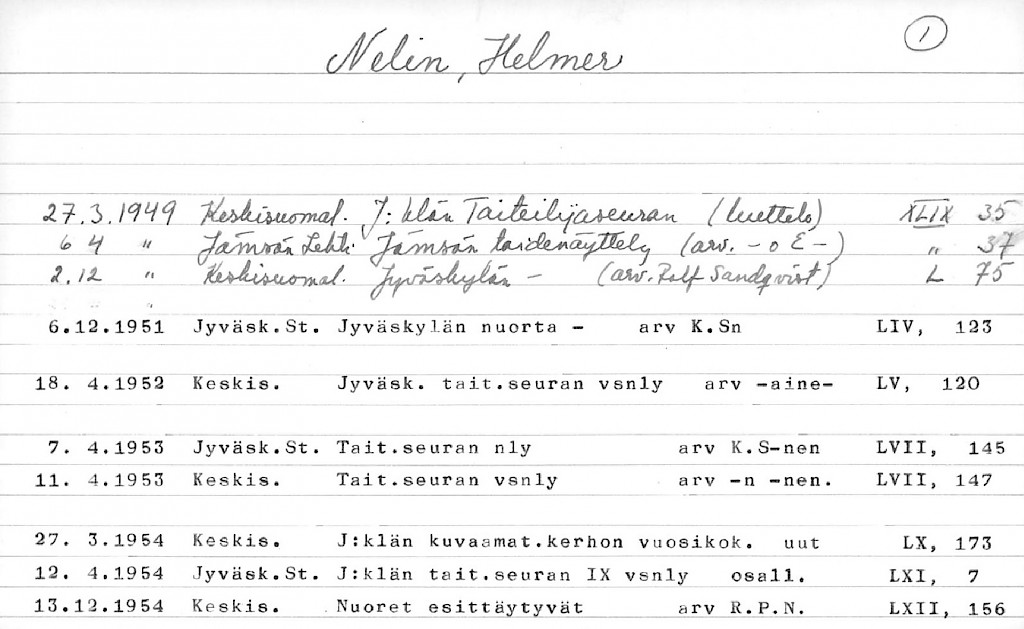 1
Nelin, Helmer
27.3.1949 Keskisuomal. J:klän Taiteilijaseuran (luettelo) XLIX 35
6 4 " Jämsän Lehti Jämsän taidenäyttely (arv. - o E -) " 37
2.12 " Keskisuomal. Jyväskylän - (arv. Rolf Sandqvist) L 75
6.12.1951 Jyväsk.St. Jyväskylän nuorta - arv K.Sn LIV, 123
18. 4.1952 Keskis. Jyväsk. tait.seuran vsnly arv -aine- LV, 120
7. 4.1953 Jyväsk.St. Tait.seuran nly arv K.S-nen LVII, 145
11. 4.1953 Keskis. Tait.seuran vsnly arv -n -nen. LVII, 147
27. 3.1954 Keskis. J:klän kuvaamat.kerhon vuosikok. uut LX, 173
12. 4.1954 Jyväsk.St. J:klän tait.seuran IX vsnly osall. LXI, 7
13.12.1954 Keskis. Nuoret esittäytyvät arv R.P.N. LXII, 156